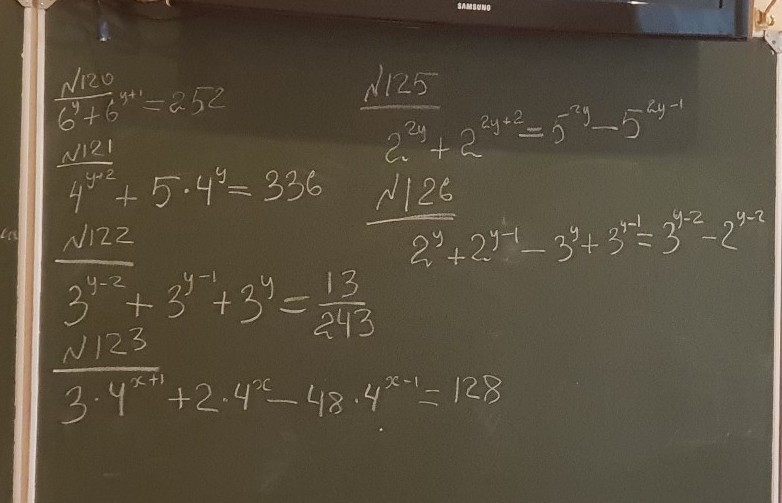 SAMSUNG
N120
6^y+6^{y+1}=252
N121
4^{y+2} + 5·4^y = 336
N122
3^{y-2} + 3^{y-1} + 3^y = \frac{13}{243}
N123
3·4^{x+1} + 2·4^x - 48·4^{x-1} = 128
N125
2^{2y} + 2^{2y+2} = 5^{2y} - 5^{2y-1}
N126
2^y + 2^{y-1} - 3^y + 3^{y-1} = 3^{y-2} - 2^{y-2}